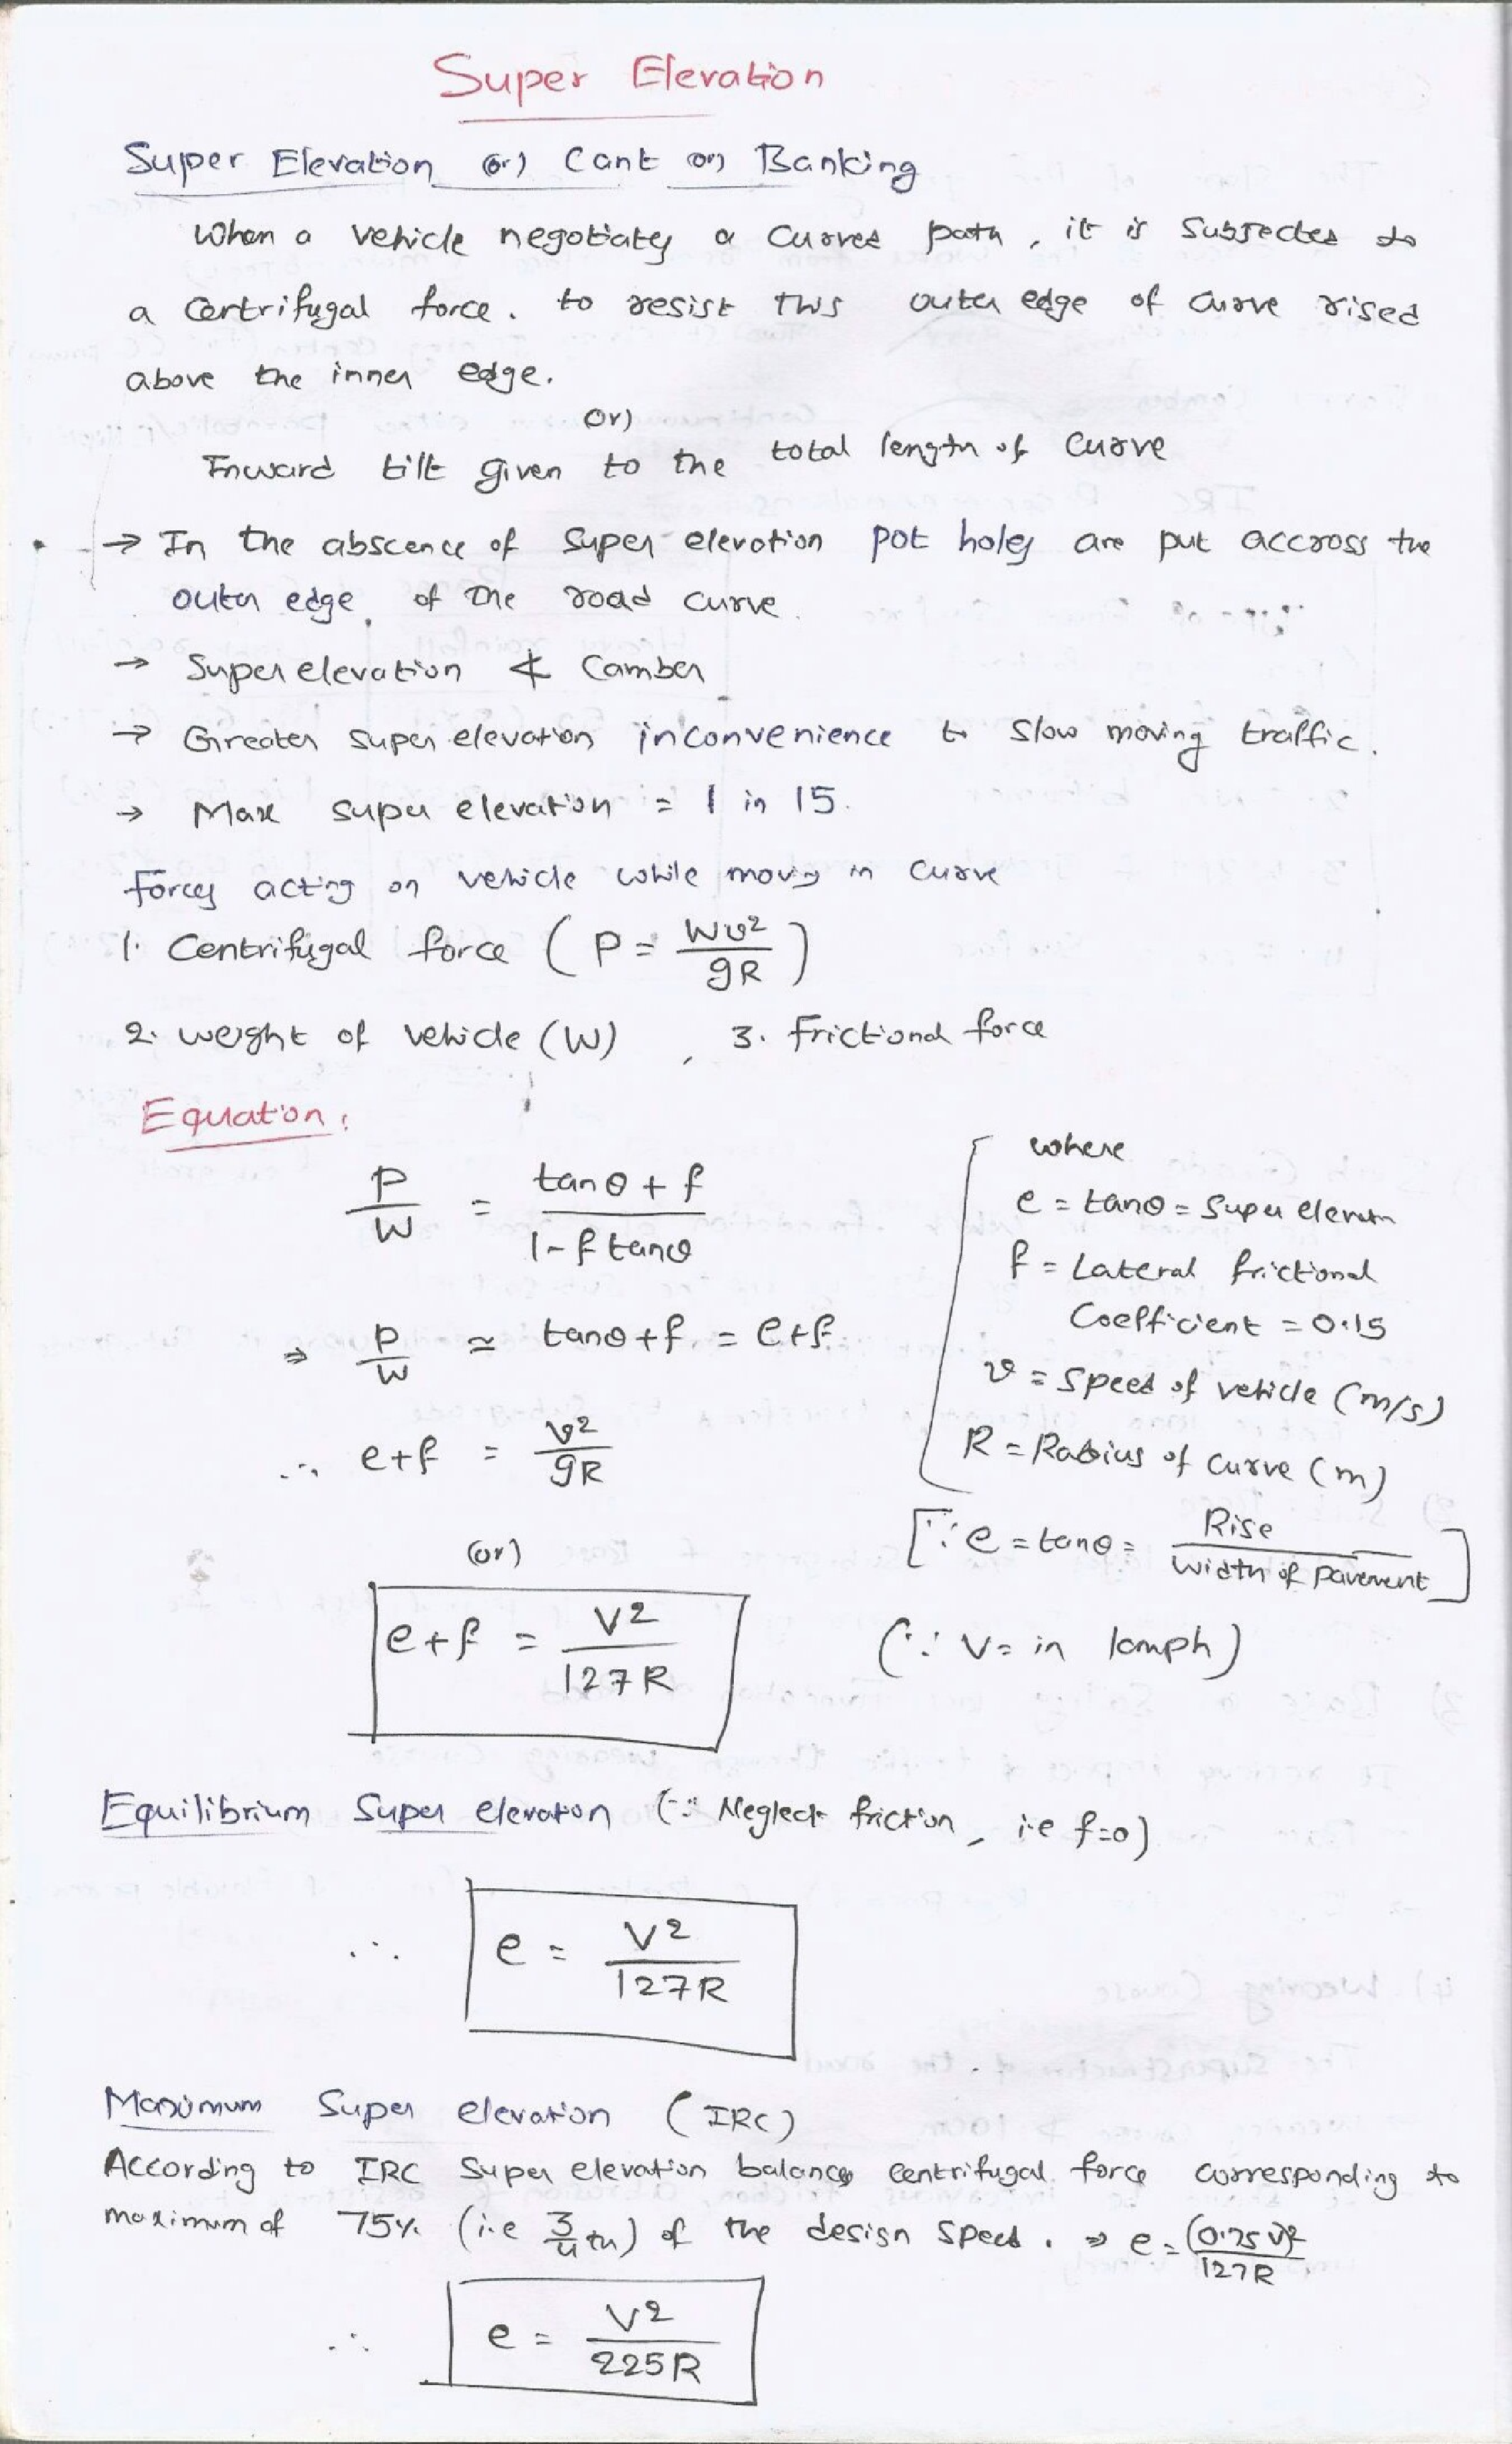 Super Elevation
Super Elevation (or) Cant (or) Banking
When a vehicle negotiates a curved path, it is subjected to
a centrifugal force. to resist this outer edge of curve rised
above the inner edge.
(or)
Inward tilt given to the total length of curve
→ In the abscence of super elevation pot holes are put accross the
outer edge of the road curve.
→ Super elevation ≮ Camber
→ Greater super elevation inconvenience to slow moving traffic.
→ Max super elevation = 1 in 15.
Forces acting on vehicle while moving in curve
1. Centrifugal force ( P = Wv²/gR )
2. weight of vehicle (W) , 3. Frictional force
Equation:
P/W = (tanθ + f)/(1 - f tanθ)
⇒ P/W ≃ tanθ + f = e+f.
∴ e+f = v²/gR
where
e = tanθ = Super elevation
f = Lateral frictional
Coefficient = 0.15
v = Speed of vehicle (m/s)
R = Radius of curve (m)
[∵ e = tanθ = Rise/Width of pavement]
(or)
e+f = V²/127R (∵ V = in kmph)
Equilibrium Super elevation (∵ Neglect friction, i.e f=0)
∴ e = V²/127R
Maximum Super elevation (IRC)
According to IRC Super elevation balances centrifugal force corresponding to
maximum of 75% (i.e 3/4 th) of the design speed. ⇒ e = (0.75 V)²/127R
∴ e = V²/225R